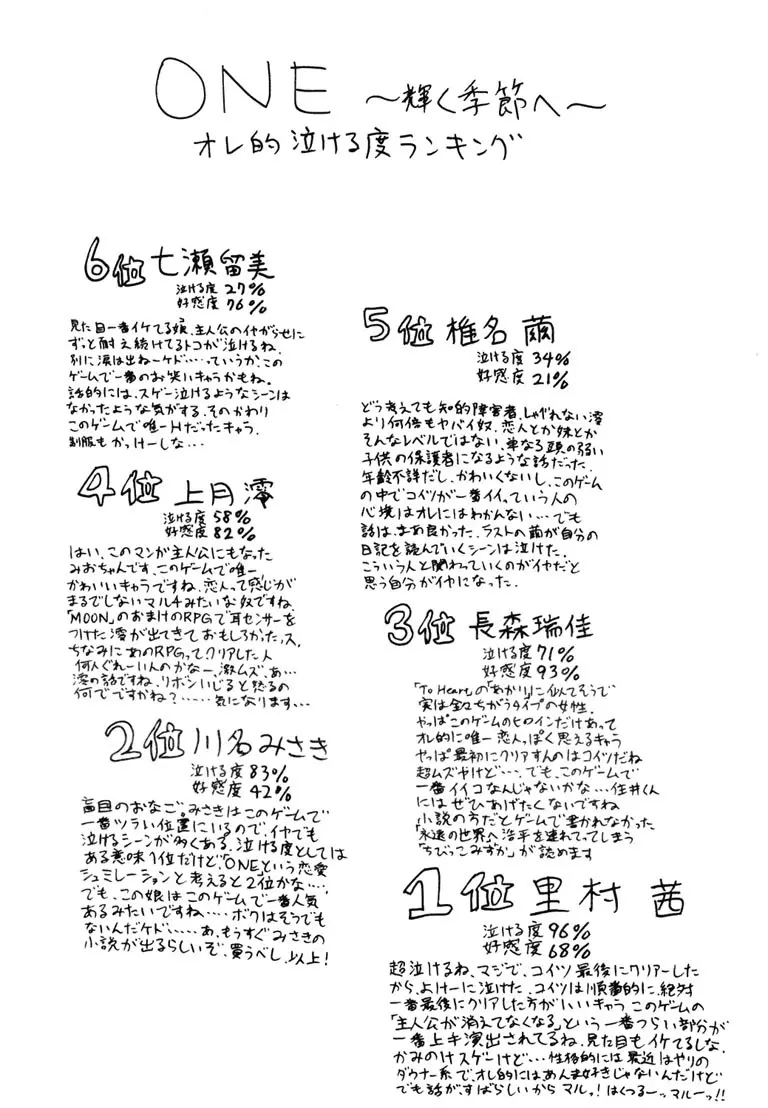 ONE ～輝く季節へ～
オレ的泣ける度ランキング
6位 七瀬留美
泣ける度 27%
好感度 76%
見た目一番イケてる娘、主人公のイヤがらせに
ずっと耐え続けてるトコが泣けるね。
別に涙は出ねーケド……っていうか、この
ゲームで一番のお笑いキャラかもね。
話的には、スゲー泣けるようなシーンは
なかったような気がする。そのかわり
このゲームで唯一Hだったキャラ。
制服もかっけーしな…
5位 椎名 繭
泣ける度 34%
好感度 21%
どう考えても知的障害者、しゃべれない澪
より何倍もヤバイ奴、恋人とか妹とか
そんなレベルではない、単なる頭の弱い
子供の保護者になるような話だった。
年齢不詳だし、かわいくないし、このゲーム
の中でコイツが一番イイっていう人の
心境はオレにはわかんない…でも
話は、まぁ良かった、ラストへ繭が自分の
日記を読んでいくシーンは泣けた。
こういう人と関わっていくのがイヤだと
思う自分がイヤになった。
4位 上月澪
泣ける度 58%
好感度 82%
はい、このマンガ主人公にもなった
みおちゃんです、このゲームで唯一
かわいいキャラですね、恋人って感じが
まるでしないマルチみたいな奴ですね、
「MOON」のおまけのRPGで耳センサーを
つけた澪が出てきておもしろかったっス、
ちなみにあのRPGってクリアした人
何人ぐれーいんのかなー、激ムズ、あ…
澪の話ですね、リボンいじると怒るの
何でですかね？……気になります…
3位 長森瑞佳
泣ける度 71%
好感度 93%
「To Heart」の「あかり」に似てそうで
実は全々ちがうタイプの女性。
やっぱこのゲームのヒロインだけあって
オレ的に唯一恋人っぽく思えるキャラ
やっぱ最初にクリアすんのはコイツだね
超ムズやけど…、でも、このゲームで
一番イイコなんじゃないかな…住井くん
にはぜひあげたくないですね
小説の方だとゲームで書かれなかった
「永遠の世界へ浩平を連れてってしまう
「ちびっこみずか」が読めます
2位 川名みさき
泣ける度 83%
好感度 42%
盲目のおなご。みさきはこのゲームで
一番ツラい位置にいるので、イヤでも
泣けるシーンが多くある、泣ける度としては
ある意味1位だけど、「ONE」という恋愛
シュミレーションと考えると2位かな…、
でも、この娘はこのゲームで一番人気
あるみたいですね…、ボクはそうでも
ないんだケド……あ、もうすぐみさきの
小説が出るらしいぞ、買うべし、以上！
1位 里村 茜
泣ける度 96%
好感度 68%
超泣けるね、マジで、コイツ最後にクリアーした
から、よけーに泣けた、コイツは順番的に、絶対
一番最後にクリアした方がいいキャラ このゲームの
「主人公が消えてなくなる」という一番つらい部分が
一番上手演出されてるね、見た目もイケてるしな、
かみのけスゲーけど…性格的には最近はやりの
ダウナー系で、オレ的にはあんま好きじゃないんだけど
でも話が、すばらしいからマルっ！はくつるーッマルーッ!!